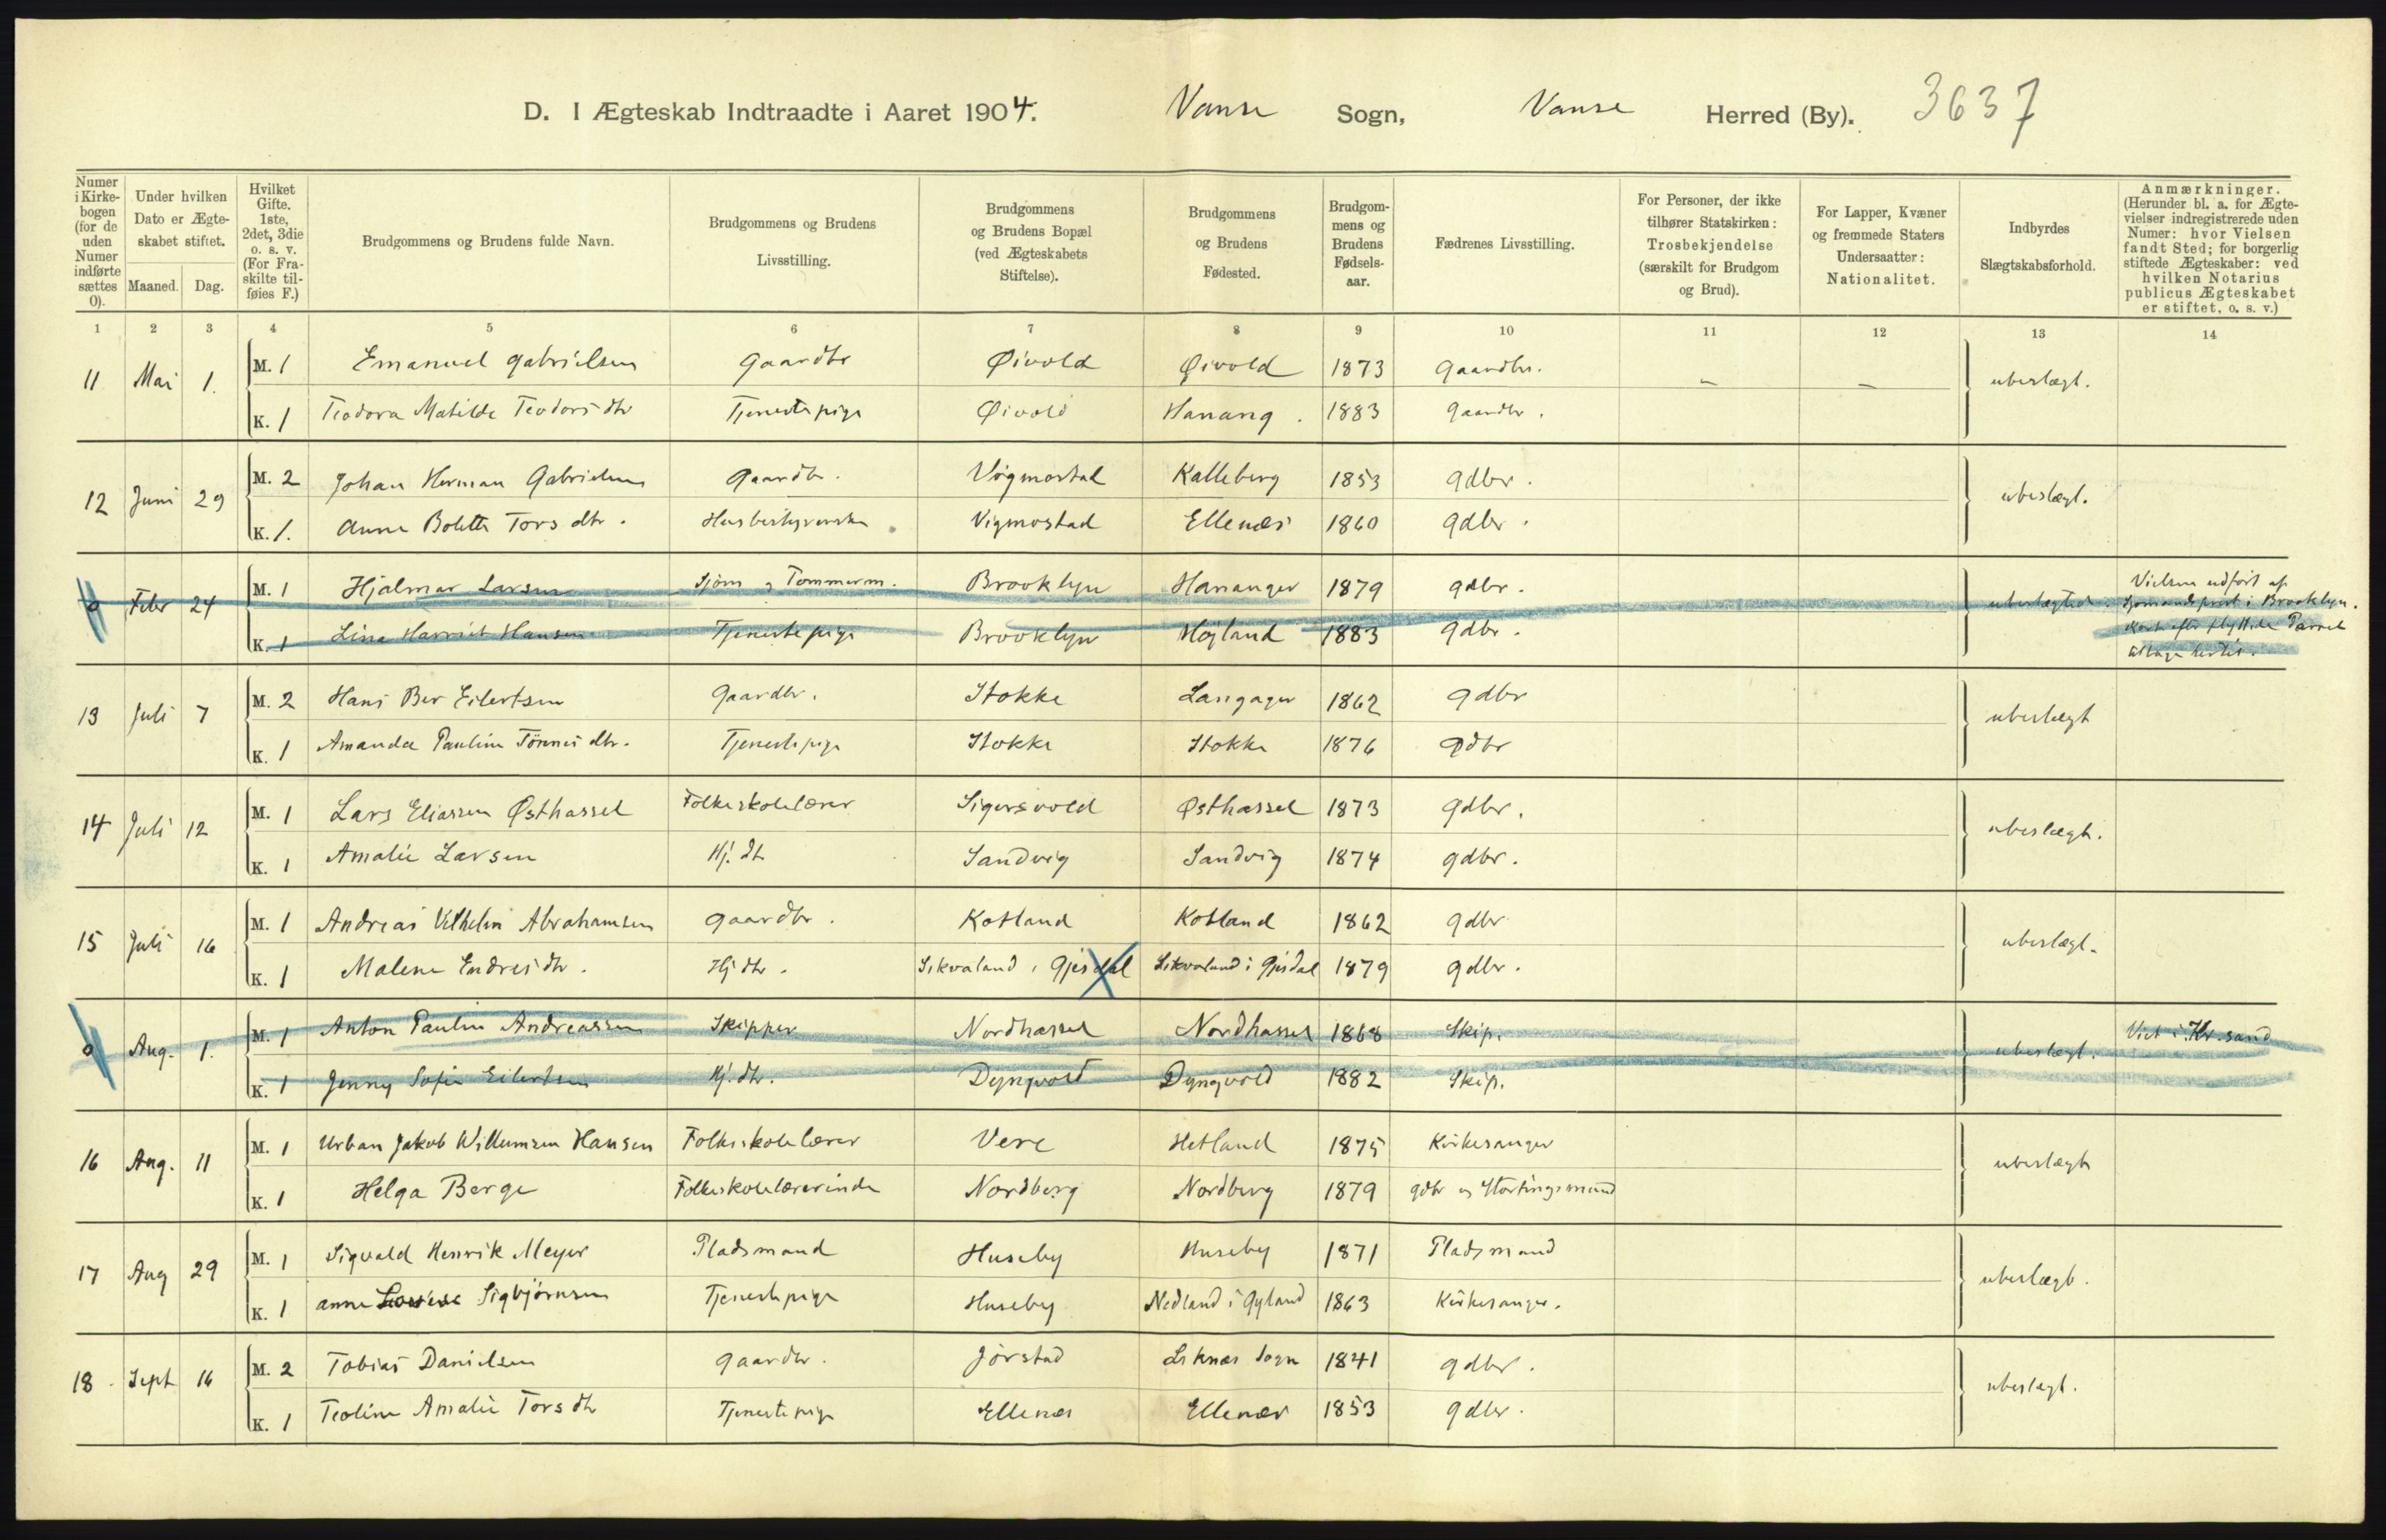 D. I Ægteskab Indtraadte i Aaret 1904. Vanse Sogn, Vanse Herred (By). 3637
Numer i Kirkebogen (for de uden Numer indførte sættes 0). Under hvilken Dato er Ægteskabet stiftet. Maaned. Dag. Hvilket Gifte. 1ste, 2det, 3die o. s. v. (For Fraskilte tilføies F.) Brudgommens og Brudens fulde Navn. Brudgommens og Brudens Livsstilling. Brudgommens og Brudens Bopæl (ved Ægteskabets Stiftelse). Brudgommens og Brudens Fødested. Brudgommens og Brudens Fødselsaar. Fædrenes Livsstilling. For Personer, der ikke tilhører Statskirken: Trosbekjendelse (særskilt for Brudgom og Brud). For Lapper, Kvæner og fremmede Staters Undersaatter: Nationalitet. Indbyrdes Slægtskabsforhold. Anmærkninger. (Herunder bl. a. for Ægtevielser indregistrerede uden Numer: hvor Vielsen fandt Sted; for borgerlig stiftede Ægteskaber: ved hvilken Notarius publicus Ægteskabet er stiftet, o. s. v.)
1 2 3 4 5 6 7 8 9 10 11 12 13 14
11 Mai 1. M. 1 Emanuel Gabrielsen Gaardbr Øivold Øivold 1873 Gaardbr. – – ubeslægt.
K. 1 Teodora Matilde Teodorsdtr Tjenestepige Øivold Hanang. 1883 Gaardbr.
12 Juni 29 M. 2 Johan Herman Gabrielsen Gaardbr. Vigmostad Kalleberg 1853 gdbr. ubeslægt.
K. 1. Anne Bolette Torsdtr. Husbestyrerske Vigmostad Ellenæs 1860 gdbr.
0 Febr 24 M. 1 Hjalmar Larsen Sjøm og Tømmerm. Brooklyn Hananger 1879 gdbr. ubeslægtede. Vielsen udført af Sjømandsprest i Brooklyn.
K. 1 Lina Harriet Hansen Tjenestepige Brooklyn Højland 1883 gdbr.
13 Juli 7 M. 2 Hans Ber Eilertsen Gaardbr. Stokke Langager 1862 gdbr ubeslægt
K. 1 Amanda Pauline Tönnesdtr. Tjenestepige Stokke Stokke 1876 gdbr
14 Juli 12 M. 1 Lars Eliassen Østhassel Folkeskolelærer Sigersvold Østhassel 1873 gdbr. ubeslægt.
K. 1 Amalie Larsen Hj. dtr Sandvig Sandvig 1874 gdbr.
15 Juli 16 M. 1 Andreas Vilhelm Abrahamsen Gaardbr. Kotland Kotland 1862 gdbr ubeslægt.
K. 1 Malene Endresdtr. Hj dtr. Sikvaland i Gjesdal Sikvaland i Gjesdal 1879 gdbr.
0 Aug. 1. M. 1 Anton Paulin Andreassen Skipper Nordhassel Nordhassel 1868 Skip. ubeslægt. Viet i Kr.sand
K. 1 Jenny Sofie Eilertsen Hj. dtr. Dyngvold Dyngvold 1882 Skip.
16 Aug. 11 M. 1 Urban Jakob Willumsen Hansen Folkeskolelærer Vere Hetland 1875 Kirkesanger ubeslægt
K. 1 Helga Berge Folkeskolelærerinde Nordberg Nordberg 1879 gdbr og Stortingsmand
17 Aug 29 M. 1 Sigvald Henrik Meyer Pladsmand Huseby Huseby 1871 Pladsmand ubeslægt.
K. 1 Anne Sigbjørnsen Tjenestepige Huseby Nedland i Gyland 1863 Kirkesanger.
18. Sept 16 M. 2 Tobias Danielsen Gaardbr. Jørstad Liknes Sogn 1841 gdbr. ubeslægt.
K. 1 Teoline Amalie Torsdtr Tjenestepige Ellenæs Ellenæs 1853 gdbr.